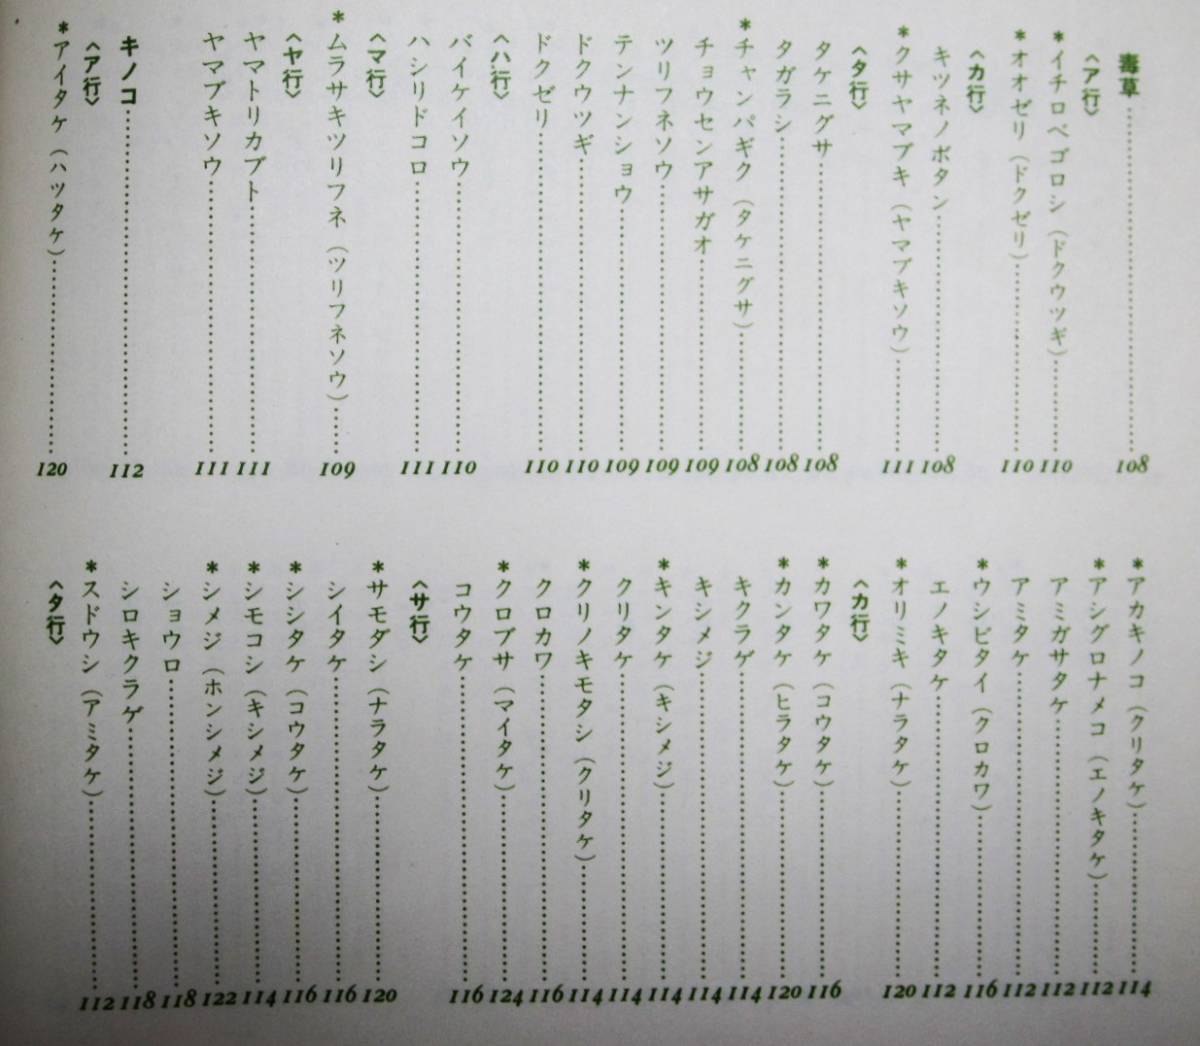 毒草……108
〈ア行〉
*イチロベゴロシ（ドクウツギ）……110
*オオゼリ（ドクゼリ）……110
〈カ行〉
キツネノボタン……108
*クサヤマブキ（ヤマブキソウ）……111
〈タ行〉
タケニグサ……108
タガラシ……108
*チャンパギク（タケニグサ）……108
チョウセンアサガオ……109
ツリフネソウ……109
テンナンショウ……109
ドクウツギ……110
ドクゼリ……110
〈ハ行〉
バイケイソウ……110
ハシリドコロ……111
〈マ行〉
*ムラサキツリフネ（ツリフネソウ）……109
〈ヤ行〉
ヤマトリカブト……111
ヤマブキソウ……111
キノコ……112
〈ア行〉
*アイタケ（ハツタケ）……120
*アカキノコ（クリタケ）……114
*アシグロナメコ（エノキタケ）……112
アミガサタケ……112
アミタケ……112
*ウシビタイ（クロカワ）……116
エノキタケ……112
*オリミキ（ナラタケ）……120
〈カ行〉
*カワタケ（コウタケ）……116
*カンタケ（ヒラタケ）……120
キクラゲ……114
キシメジ……114
*キンタケ（キシメジ）……114
クリタケ……114
*クリノキモタシ（クリタケ）……114
クロカワ……116
*クロブサ（マイタケ）……124
コウタケ……116
〈サ行〉
*サモダシ（ナラタケ）……120
シイタケ……116
*シシタケ（コウタケ）……116
*シモコシ（キシメジ）……114
*シメジ（ホンシメジ）……122
ショウロ……118
シロキクラゲ……118
*スドウシ（アミタケ）……112
〈タ行〉